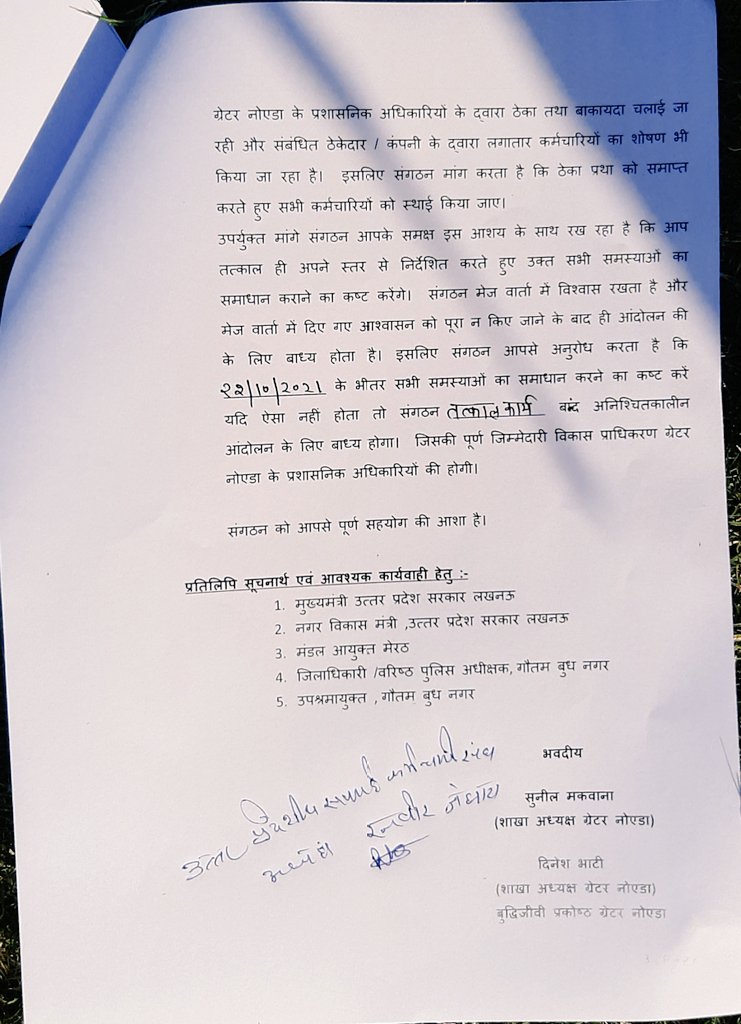 ग्रेटर नोएडा के प्रशासनिक अधिकारियों के द्वारा ठेका तथा बाकायदा चलाई जा
रही और संबंधित ठेकेदार / कंपनी के द्वारा लगातार कर्मचारियों का शोषण भी
किया जा रहा है। इसलिए संगठन मांग करता है कि ठेका प्रथा को समाप्त
करते हुए सभी कर्मचारियों को स्थाई किया जाए।
उपर्युक्त मांगे संगठन आपके समक्ष इस आशय के साथ रख रहा है कि आप
तत्काल ही अपने स्तर से निर्देशित करते हुए उक्त सभी समस्याओं का
समाधान कराने का कष्ट करेंगे। संगठन मेज वार्ता में विश्वास रखता है और
मेज वार्ता में दिए गए आश्वासन को पूरा न किए जाने के बाद ही आंदोलन की
के लिए बाध्य होता है। इसलिए संगठन आपसे अनुरोध करता है कि
22/10/2021 के भीतर सभी समस्याओं का समाधान करने का कष्ट करें
यदि ऐसा नहीं होता तो संगठन तत्काल कार्य बंद अनिश्चितकालीन
आंदोलन के लिए बाध्य होगा। जिसकी पूर्ण जिम्मेदारी विकास प्राधिकरण ग्रेटर
नोएडा के प्रशासनिक अधिकारियों की होगी।
संगठन को आपसे पूर्ण सहयोग की आशा है।
प्रतिलिपि सूचनार्थ एवं आवश्यक कार्यवाही हेतु :-
1. मुख्यमंत्री उत्तर प्रदेश सरकार लखनऊ
2. नगर विकास मंत्री ,उत्तर प्रदेश सरकार लखनऊ
3. मंडल आयुक्त मेरठ
4. जिलाधिकारी /वरिष्ठ पुलिस अधीक्षक, गौतम बुध नगर
5. उपश्रमायुक्त , गौतम बुध नगर
भवदीय
सुनील मकवाना
(शाखा अध्यक्ष ग्रेटर नोएडा)
दिनेश भाटी
(शाखा अध्यक्ष ग्रेटर नोएडा)
बुद्धिजीवी प्रकोष्ठ ग्रेटर नोएडा